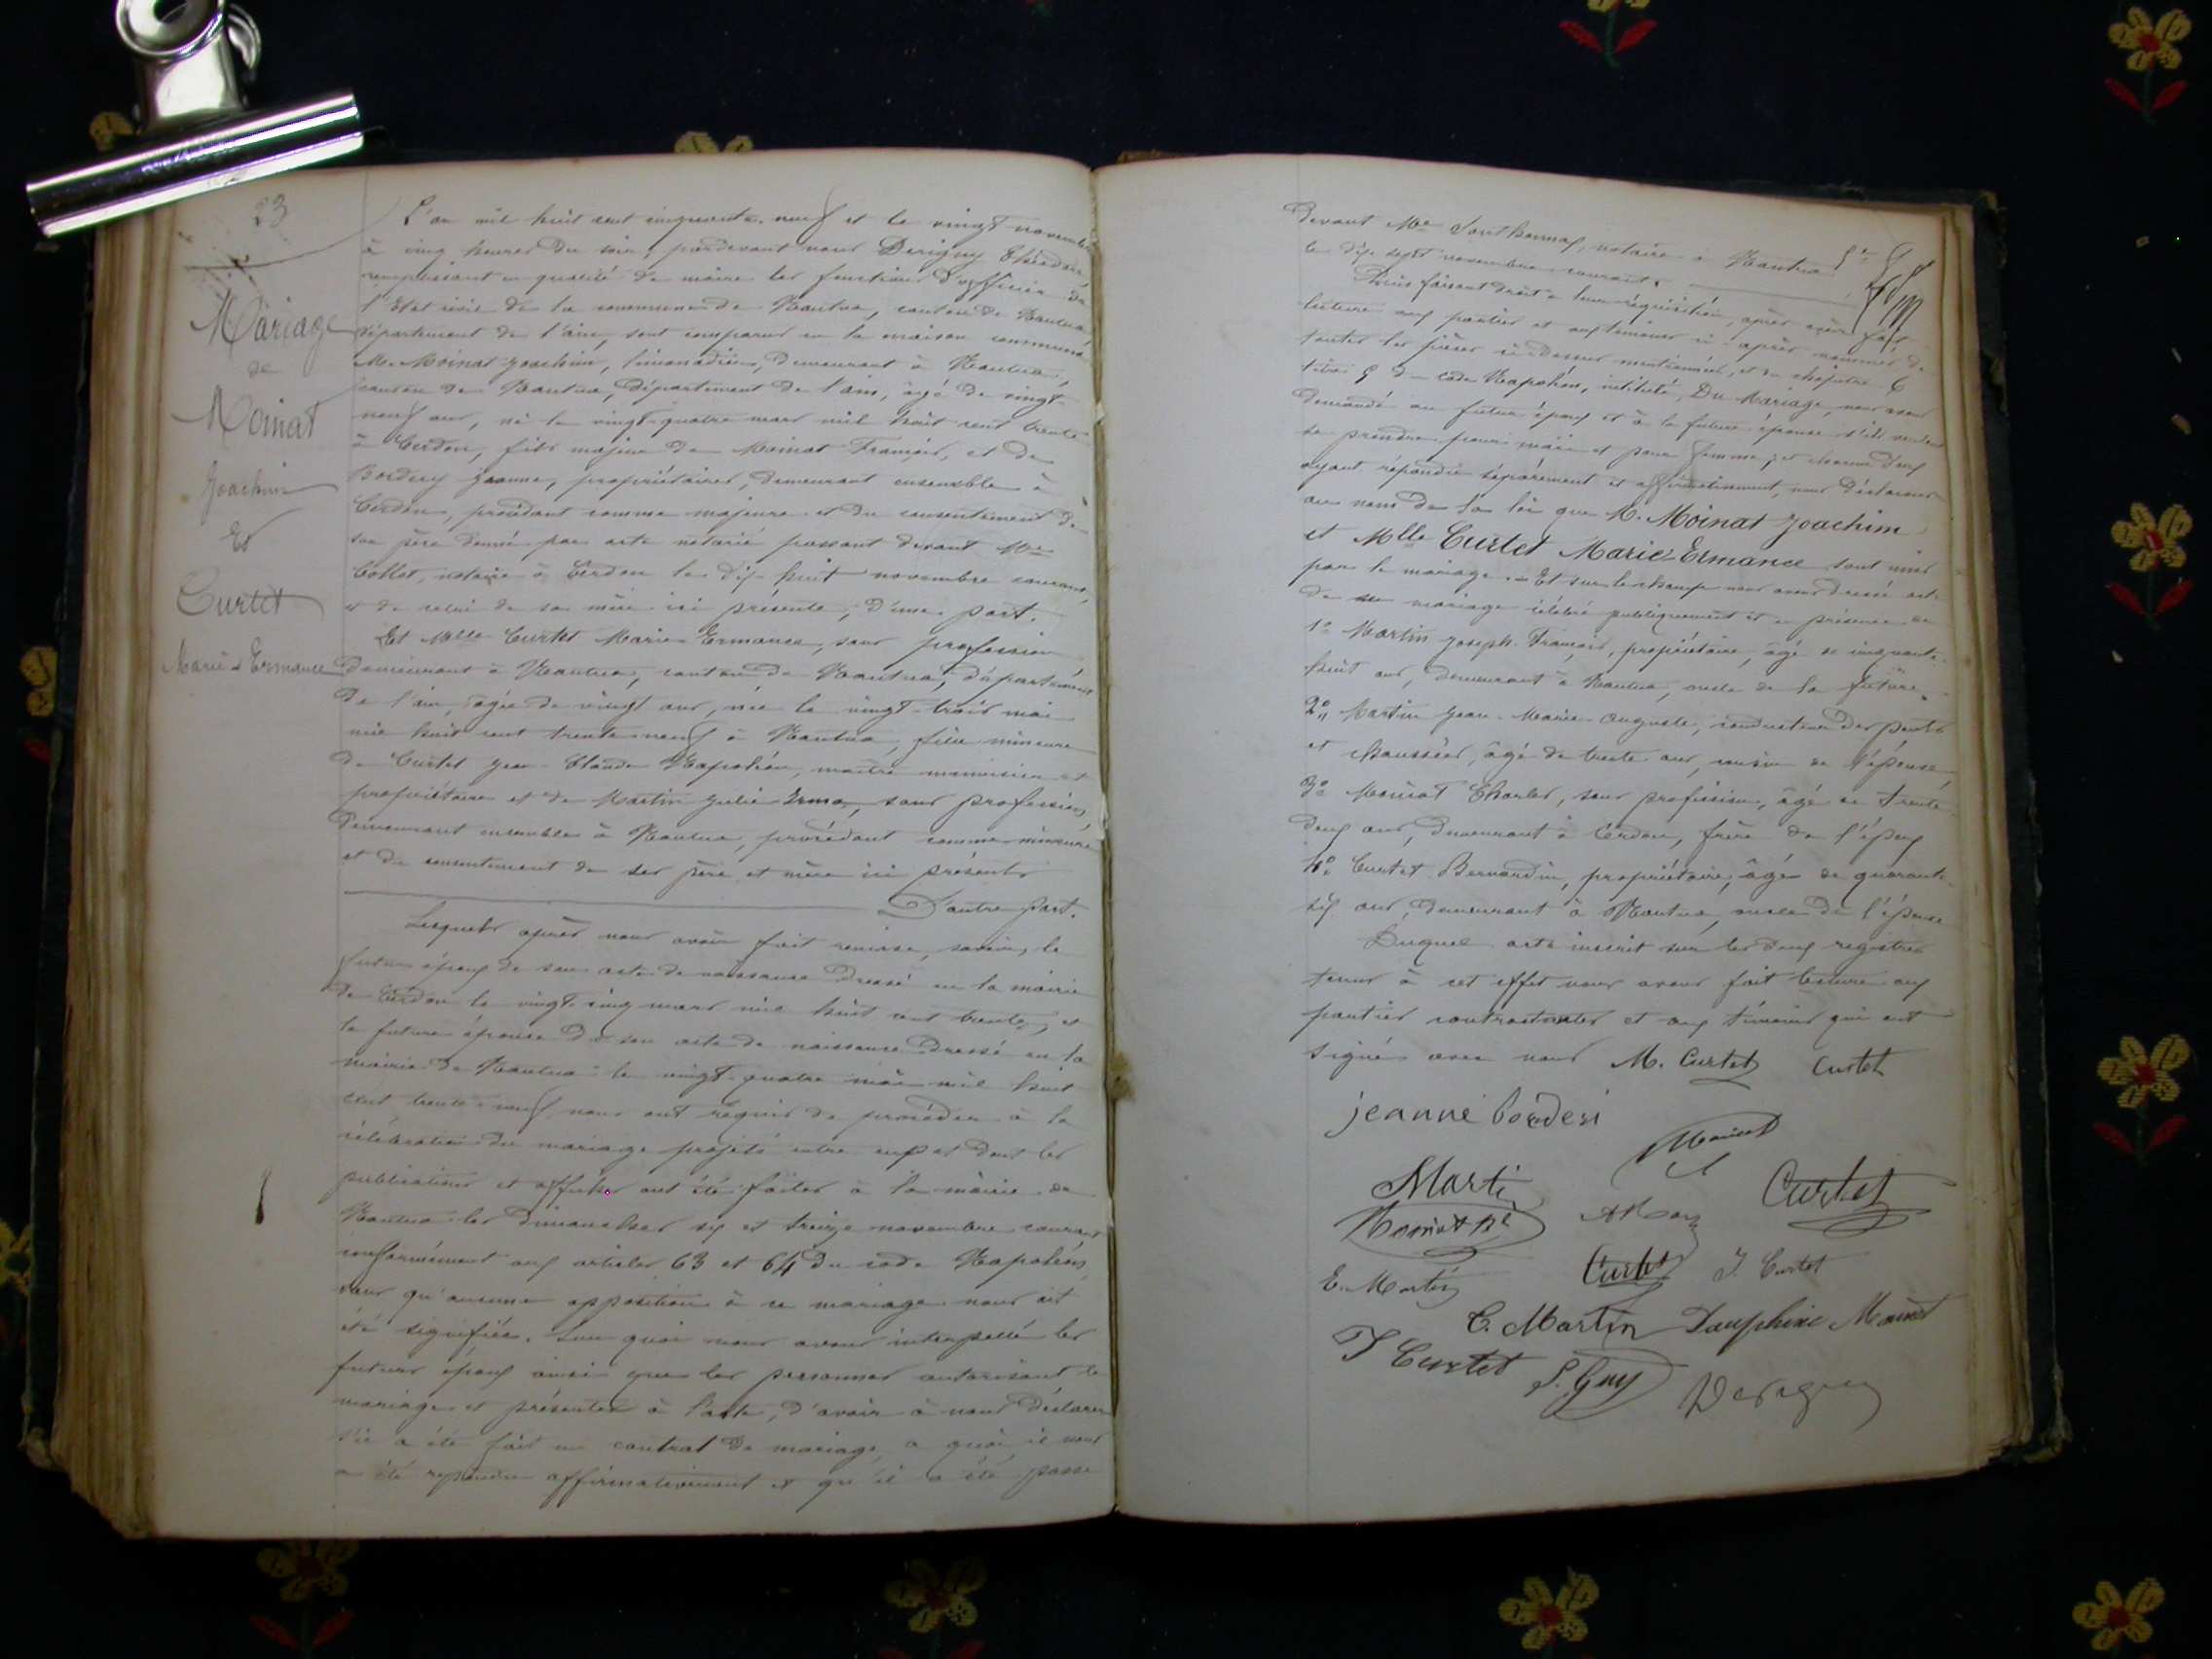 23
Mariage
de
Moinat
Joachim
Et
Curtet
Marie Ermance
L'an mil huit cent cinquante-neuf et le vingt novembre
à cinq heures du soir, pardevant nous Derigny Théodore
remplissant en qualité de maire les fonctions d'officier de
l'Etat civil de la commune de Nantua, canton de Nantua
département de l'ain, sont comparus en la maison commune
M. Moinat Joachim, limonadier, demeurant à Nantua,
canton de Nantua, département de l'ain, âgé de vingt-
neuf ans, né le vingt-quatre mars mil huit cent trente
à Cerdon, fils majeur de Moinat François, et de
Jeanne, propriétaires, demeurant ensemble à
Cerdon, procédant comme majeure et du consentement de
son père donné par acte notarié passant devant Me
Collet, notaire à Cerdon le dix-huit novembre courant,
et de celui de sa mère ici présente, d'une part.
Et Mlle Curtet Marie-Ermance, sans profession
demeurant à Nantua, canton de Nantua, département
de l'ain, âgée de vingt ans, née le vingt-trois mai
mil huit cent trente-neuf à Nantua, fille mineure
de Curtet Jean-Claude Napoléon, maître menuisier et
propriétaire et de Martin Julie Irma, sans profession,
demeurant ensemble à Nantua, procédant comme mineure
et du consentement de ses père et mère ici présents
D'autre part.
Lesquels après nous avoir fait remise, savoir, le
futur époux de son acte de naissance dressé en la mairie
de Cerdon le vingt-cinq mars mil huit cent trente, et
la future épouse de son acte de naissance dressé en la
mairie de Nantua le vingt-quatre mai mil huit
cent trente-neuf nous ont requis de procéder à la
célébration du mariage projeté entre eux et dont les
publications et affiches ont été faites à la mairie de
Nantua les dimanches six et treize novembre courant
conformément aux articles 63 et 64 du code Napoléon,
sans qu'aucune opposition à ce mariage nous ait
été signifiée. Sur quoi nous avons interpellé les
futurs époux ainsi que les personnes autorisant le
mariage et présentes à l'acte, d'avoir à nous déclarer
s'il a été fait un contrat de mariage, a quoi il nous
a été répondu affirmativement et qu'il a été passé
devant Me notaire à Nantua
le dix-sept novembre courant.
Puis faisant droit à leur réquisition, après avoir fait
lecture aux parties et aux témoins ci-après nommés de
toutes les pièces ci-dessus mentionnées, et du chapitre 6
titre 5 du code Napoléon, intitulé, Du Mariage, nous avons
demandé au futur époux et à la future épouse s'ils veulent
se prendre pour mari et pour femme; et chacun d'eux
ayant répondu séparément et affirmativement, nous déclarons
au nom de la loi que M. Moinat Joachim
et Mlle Curtet Marie-Ermance sont unis
par le mariage. Et sur le champ nous avons dressé acte
de mariage célébré publiquement et en présence de
1º Martin Joseph-François, propriétaire, âgé de cinquante-
huit ans, demeurant à Nantua, oncle de la future.
2º Martin Jean-Marie-Auguste, conducteur des ponts
et chaussées, âgé de trente ans, cousin de l'épouse
3º Moinat Charles, sans profession, âgé de trente-
deux ans, demeurant à Cerdon, frère de l'époux
4º Curtet Bernardin, propriétaire, âgé de quarante-
six ans, demeurant à Nantua, oncle de l'épouse
Duquel acte inscrit sur les deux registres
tenus à cet effet nous avons fait lecture aux
parties contractantes et aux témoins qui ont
signé avec nous M. Curtet Curtet
jeanne borderi
Moinat
Martin
Curtet
Moinat
Curtet J. Curtet
E. Martin
C. Martin Dauphine Moinat
J Curtet S. Guy Derigny